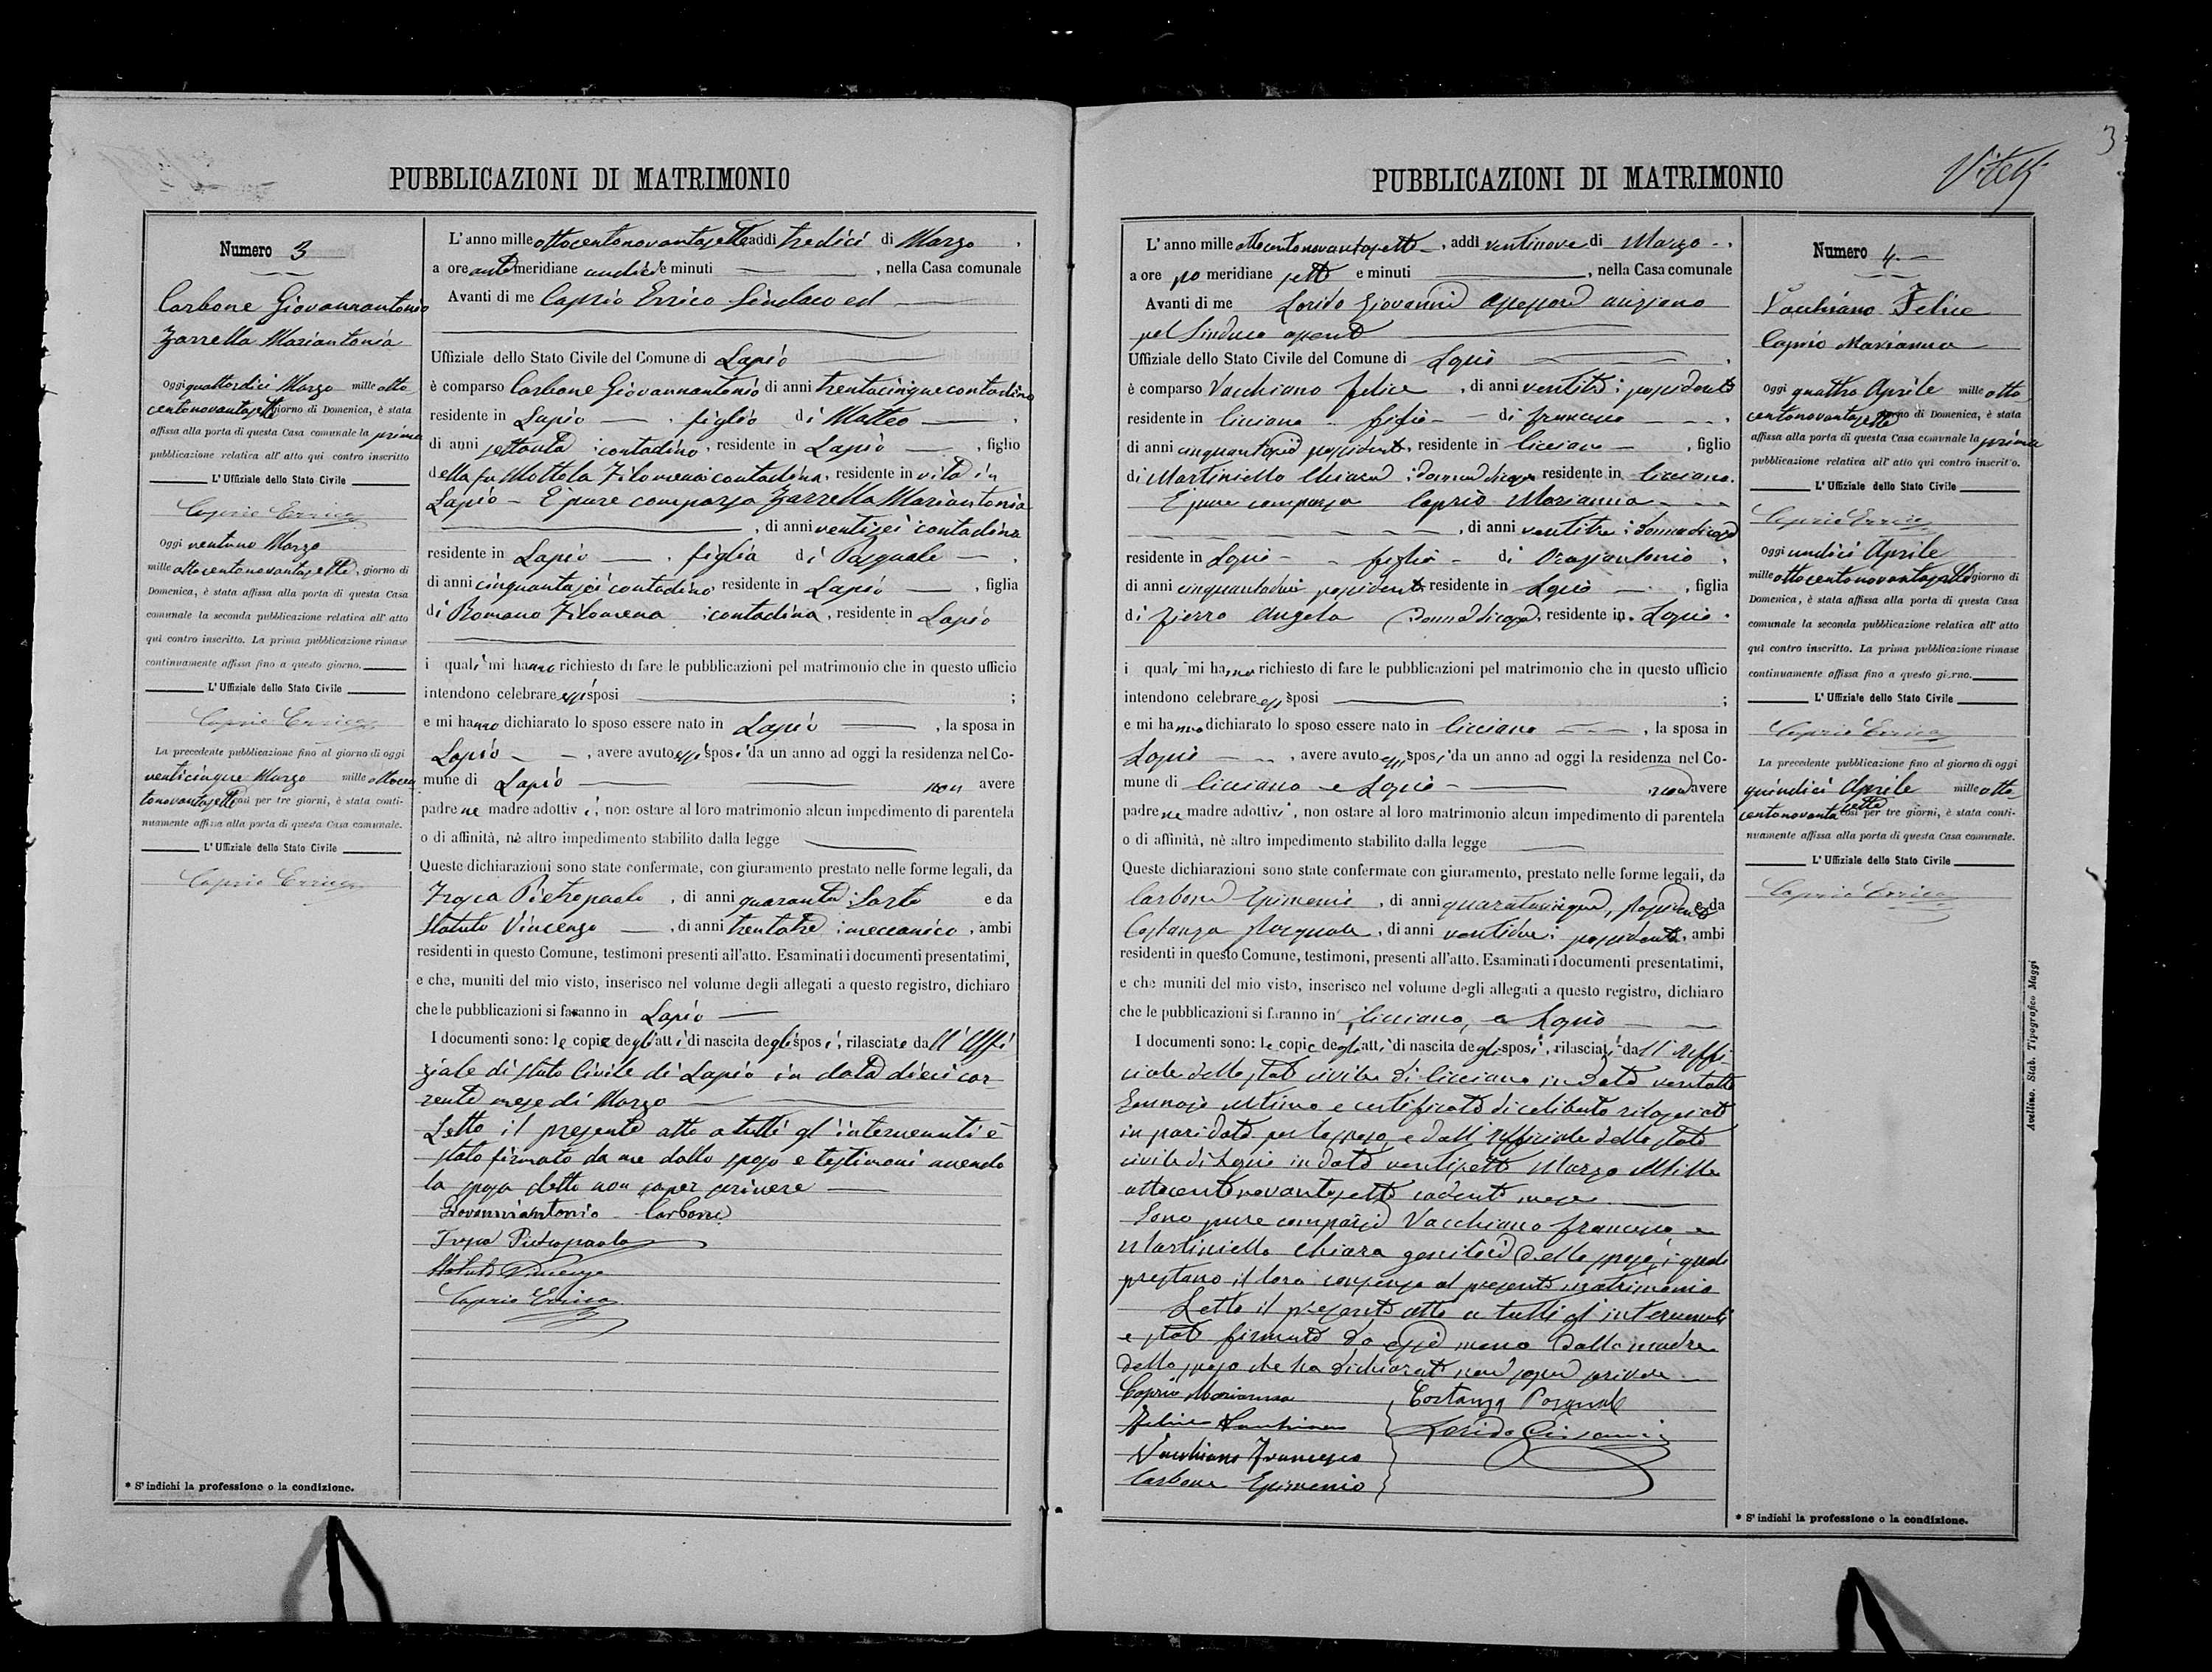 PUBBLICAZIONI DI MATRIMONIO
Numero 3
Carbone Giovannantonio
Zarrella Mariantonia
Oggi quattordici Marzo mille otto
centonovantasette giorno di Domenica, è stata
affissa alla porta di questa Casa comunale la prima
pubblicazione relativa all' atto qui contro inscritto
L' Uffiziale dello Stato Civile
Caprio Errico
Oggi ventuno Marzo
mille ottocentonovantasette, giorno di
Domenica, è stata affissa alla porta di questa Casa
comunale la seconda pubblicazione relativa all' atto
qui contro inscritto. La prima pubblicazione rimase
continuamente affissa fino a questo giorno.
L' Uffiziale dello Stato Civile
Caprio Errico
La precedente pubblicazione fino al giorno di oggi
venticinque Marzo mille ottocen
tonovantasette così per tre giorni, è stata conti-
nuamente affissa alla porta di questa Casa comunale.
L' Uffiziale dello Stato Civile
Caprio Errico
* S' indichi la professione o la condizione.
L' anno mille ottocentonovantasette addì tredici di Marzo,
a ore antemeridiane undici e minuti, nella Casa comunale
Avanti di me Caprio Errico Sindaco ed
Uffiziale dello Stato Civile del Comune di Lapio
è comparso Carbone Giovannantonio di anni trentacinque contadino
residente in Lapio, figlio di Matteo
di anni settanta contadino, residente in Lapio, figlio
della fu Mottola Filomena contadina, residente in vita in
Lapio - È pure comparsa Zarrella Mariantonia
, di anni ventisei contadina
residente in Lapio, figlia di Pasquale
di anni cinquantasei contadino residente in Lapio, figlia
di Romano Filomena contadina, residente in Lapio
i quali mi hanno richiesto di fare le pubblicazioni pel matrimonio che in questo ufficio
intendono celebrare essi sposi ;
e mi hanno dichiarato lo sposo essere nato in Lapio, la sposa in
Lapio, avere avuto essi sposi da un anno ad oggi la residenza nel Co-
mune di Lapio non avere
padre ne madre adottivi, non ostare al loro matrimonio alcun impedimento di parentela
o di affinità, nè altro impedimento stabilito dalla legge
Queste dichiarazioni sono state confermate, con giuramento prestato nelle forme legali, da
Troja Pietropaolo, di anni quaranta Sarto e da
Statuto Vincenzo, di anni trentatre meccanico, ambi
residenti in questo Comune, testimoni presenti all'atto. Esaminati i documenti presentatimi,
e che, muniti del mio visto, inserisco nel volume degli allegati a questo registro, dichiaro
che le pubblicazioni si faranno in Lapio
I documenti sono: le copie degli atti di nascita degli sposi, rilasciate dall' Uffi
ziale di stato Civile di Lapio in data dieci cor
rente mese di Marzo
Letto il presente atto a tutti gl' intervenuti è
stato firmato da me dallo sposo e testimoni avendo
la sposa detto non saper scrivere
Giovanniantonio Carbone
Troja Pietropaolo
Statuto Vincenzo
Caprio Errico
3
Vitelli
PUBBLICAZIONI DI MATRIMONIO
L' anno mille ottocentonovantasette, addì ventinove di Marzo,
a ore po meridiane sette e minuti, nella Casa comunale
Avanti di me Lorido Giovanni Assessore anziano
pel Sindaco assente
Uffiziale dello Stato Civile del Comune di Lapio
è comparso Vacchiano Felice, di anni possidente
residente in Licciano figlio di Francesco
di anni cinquantasei possidente, residente in Licciano, figlio
di Martiniello Chiara donna di casa residente in Licciano.
È pure comparsa Caprio Marianna
, di anni ventitre donna di casa
residente in Lapio figlia di
di anni cinquantadue possidente residente in Lapio, figlia
di Fierro Angela donna di casa, residente in Lapio.
i quali mi hanno richiesto di fare le pubblicazioni pel matrimonio che in questo ufficio
intendono celebrare essi sposi ;
e mi hanno dichiarato lo sposo essere nato in Licciano, la sposa in
Lapio, avere avuto essi sposi da un anno ad oggi la residenza nel Co-
mune di Licciano e Lapio non avere
padre ne madre adottivi, non ostare al loro matrimonio alcun impedimento di parentela
o di affinità, nè altro impedimento stabilito dalla legge
Queste dichiarazioni sono state confermate con giuramento, prestato nelle forme legali, da
Carbone Epimenio, di anni quarantacinque, possidente e da
Costanza Pasquale, di anni ventidue possidente, ambi
residenti in questo Comune, testimoni, presenti all'atto. Esaminati i documenti presentatimi,
e che muniti del mio visto, inserisco nel volume degli allegati a questo registro, dichiaro
che le pubblicazioni si faranno in Licciano, e Lapio
I documenti sono: le copie degli atti di nascita degli sposi, rilasciati dall' Uffi-
ciale dello stato civile di Licciano in data ventotto
Gennaio ultimo e certificato di celibato rilasciato
in pari data per lo sposo, e dall' Ufficiale dello stato
civile di Lapio in data ventisette Marzo Mille
ottocentonovantasette cadente mese
Sono pure comparsi Vacchiano Francesco e
Martiniello Chiara genitori dello sposo, i quali
prestano il loro consenso al presente matrimonio
Letto il presente atto a tutti gl' intervenuti
e stato firmato da essi meno dalla madre
dello sposo che ha dichiarato non saper scrivere
Caprio Marianna
Felice Vacchiano
Vacchiano Francesco
Carbone Epimenio
Costanza Pasquale
Lorido Giovanni
Numero 4
Vacchiano Felice
Caprio Marianna
Oggi quattro Aprile mille otto
centonovantasette giorno di Domenica, è stata
affissa alla porta di questa Casa comunale la prima
pubblicazione relativa all' atto qui contro inscritto.
L' Uffiziale dello Stato Civile
Caprio Errico
Oggi undici Aprile
mille ottocentonovantasette giorno di
Domenica, è stata affissa alla porta di questa Casa
comunale la seconda pubblicazione relativa all' atto
qui contro inscritto. La prima pubblicazione rimase
continuamente affissa fino a questo giorno.
L' Uffiziale dello Stato Civile
Caprio Errico
La precedente pubblicazione fino al giorno di oggi
quindici Aprile mille otto
centonovantasette così per tre giorni, è stata conti-
nuamente affissa alla porta di questa Casa comunale.
L' Uffiziale dello Stato Civile
Caprio Errico
* S' indichi la professione o la condizione.
Avellino. Stab. Tipografico Maggi